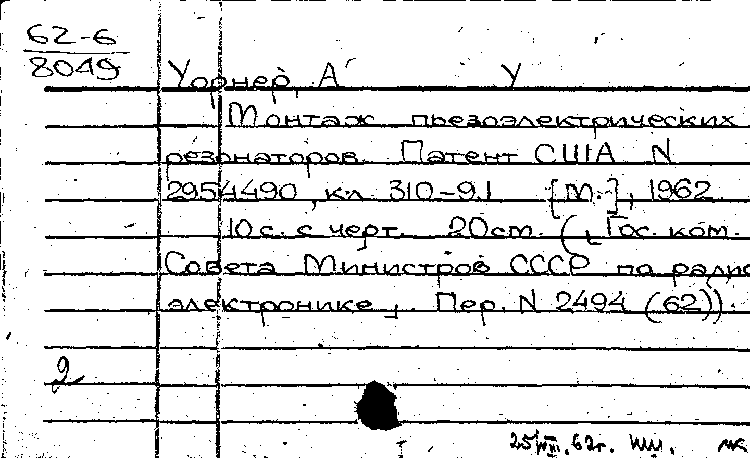 62-6
8049
Уорнер, А У
Монтаж пьезоэлектрических
резонаторов. Патент США N
2954490, кл. 310-9.1 [М.], 1962.
10 с. с черт. 20 см. ([Гос. ком.
Совета Министров СССР по радио
электронике], Пер. N 2494 (62)).
2
25/VIII.62г.